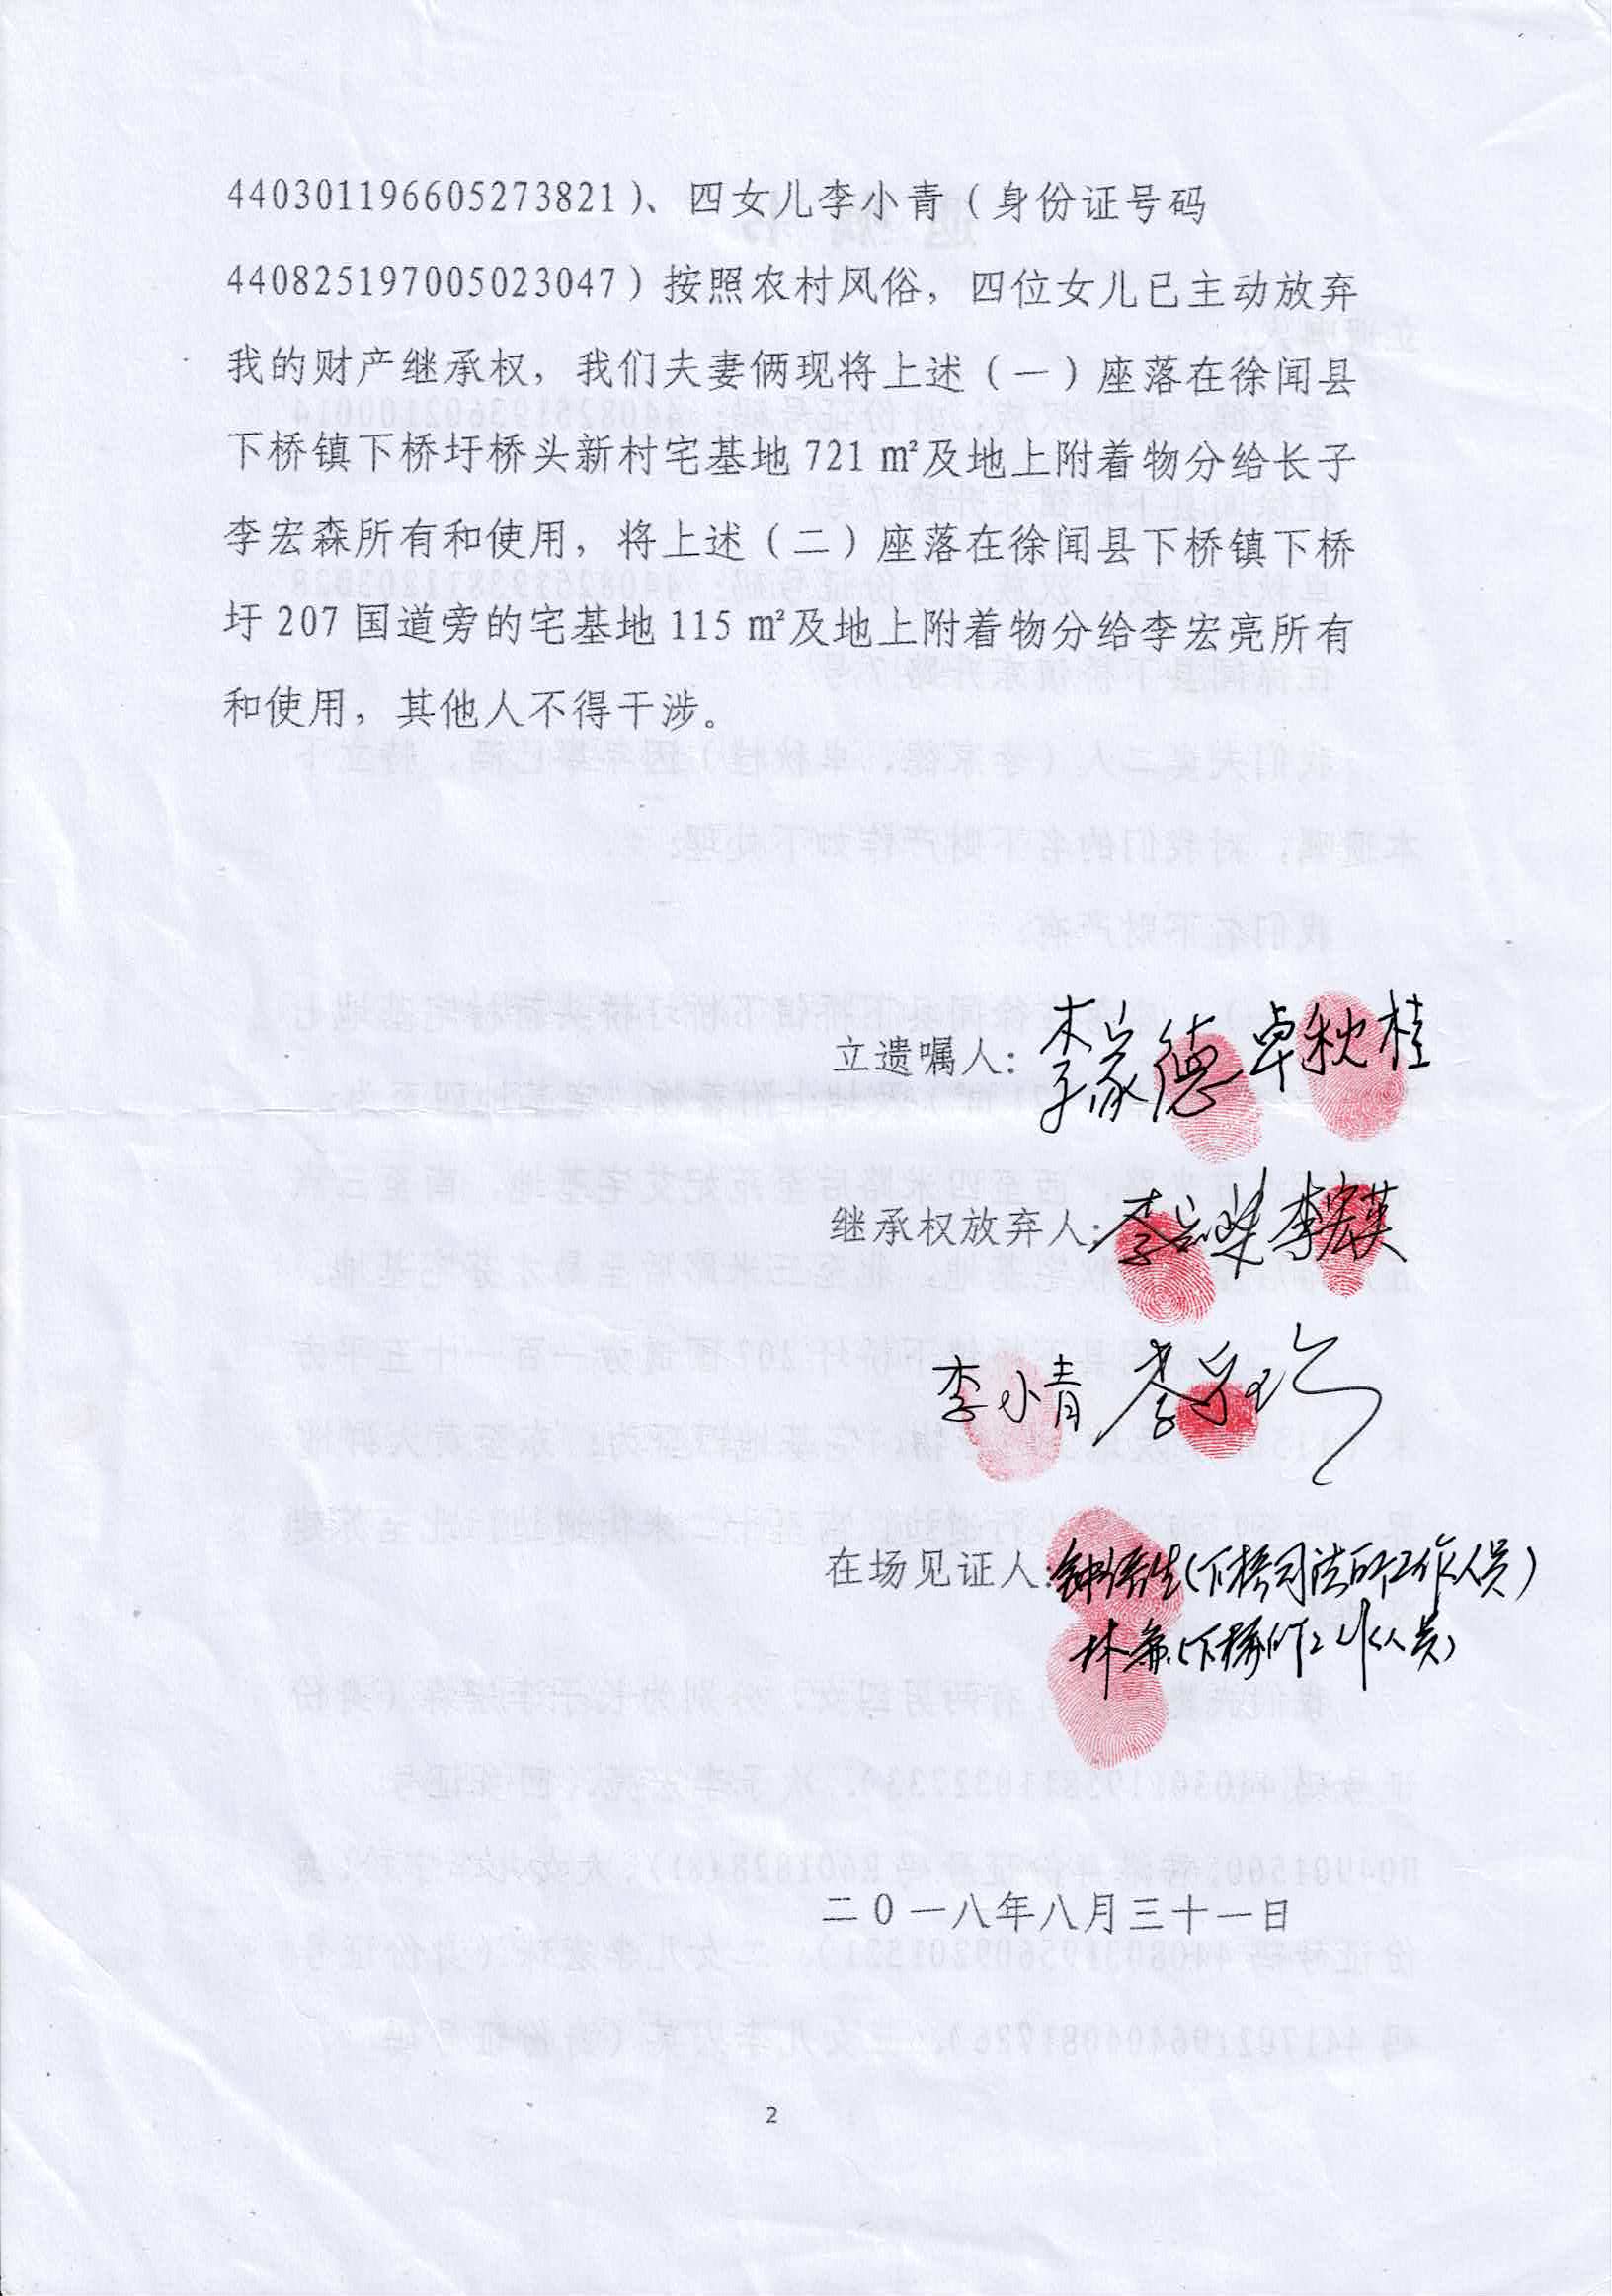 440301196605273821)、四女儿李小青（身份证号码
440825197005023047）按照农村风俗，四位女儿已主动放弃
我的财产继承权，我们夫妻俩现将上述（一）座落在徐闻县
下桥镇下桥圩桥头新村宅基地 721 ㎡及地上附着物分给长子
李宏森所有和使用，将上述（二）座落在徐闻县下桥镇下桥
圩 207 国道旁的宅基地 115 ㎡及地上附着物分给李宏亮所有
和使用，其他人不得干涉。
立遗嘱人：李家德 卓秋桂
继承权放弃人：李 李宏英
李小青 李
在场见证人：钟（下桥司法所工作人员）
林（下桥所工作人员）
二０一八年八月三十一日
2